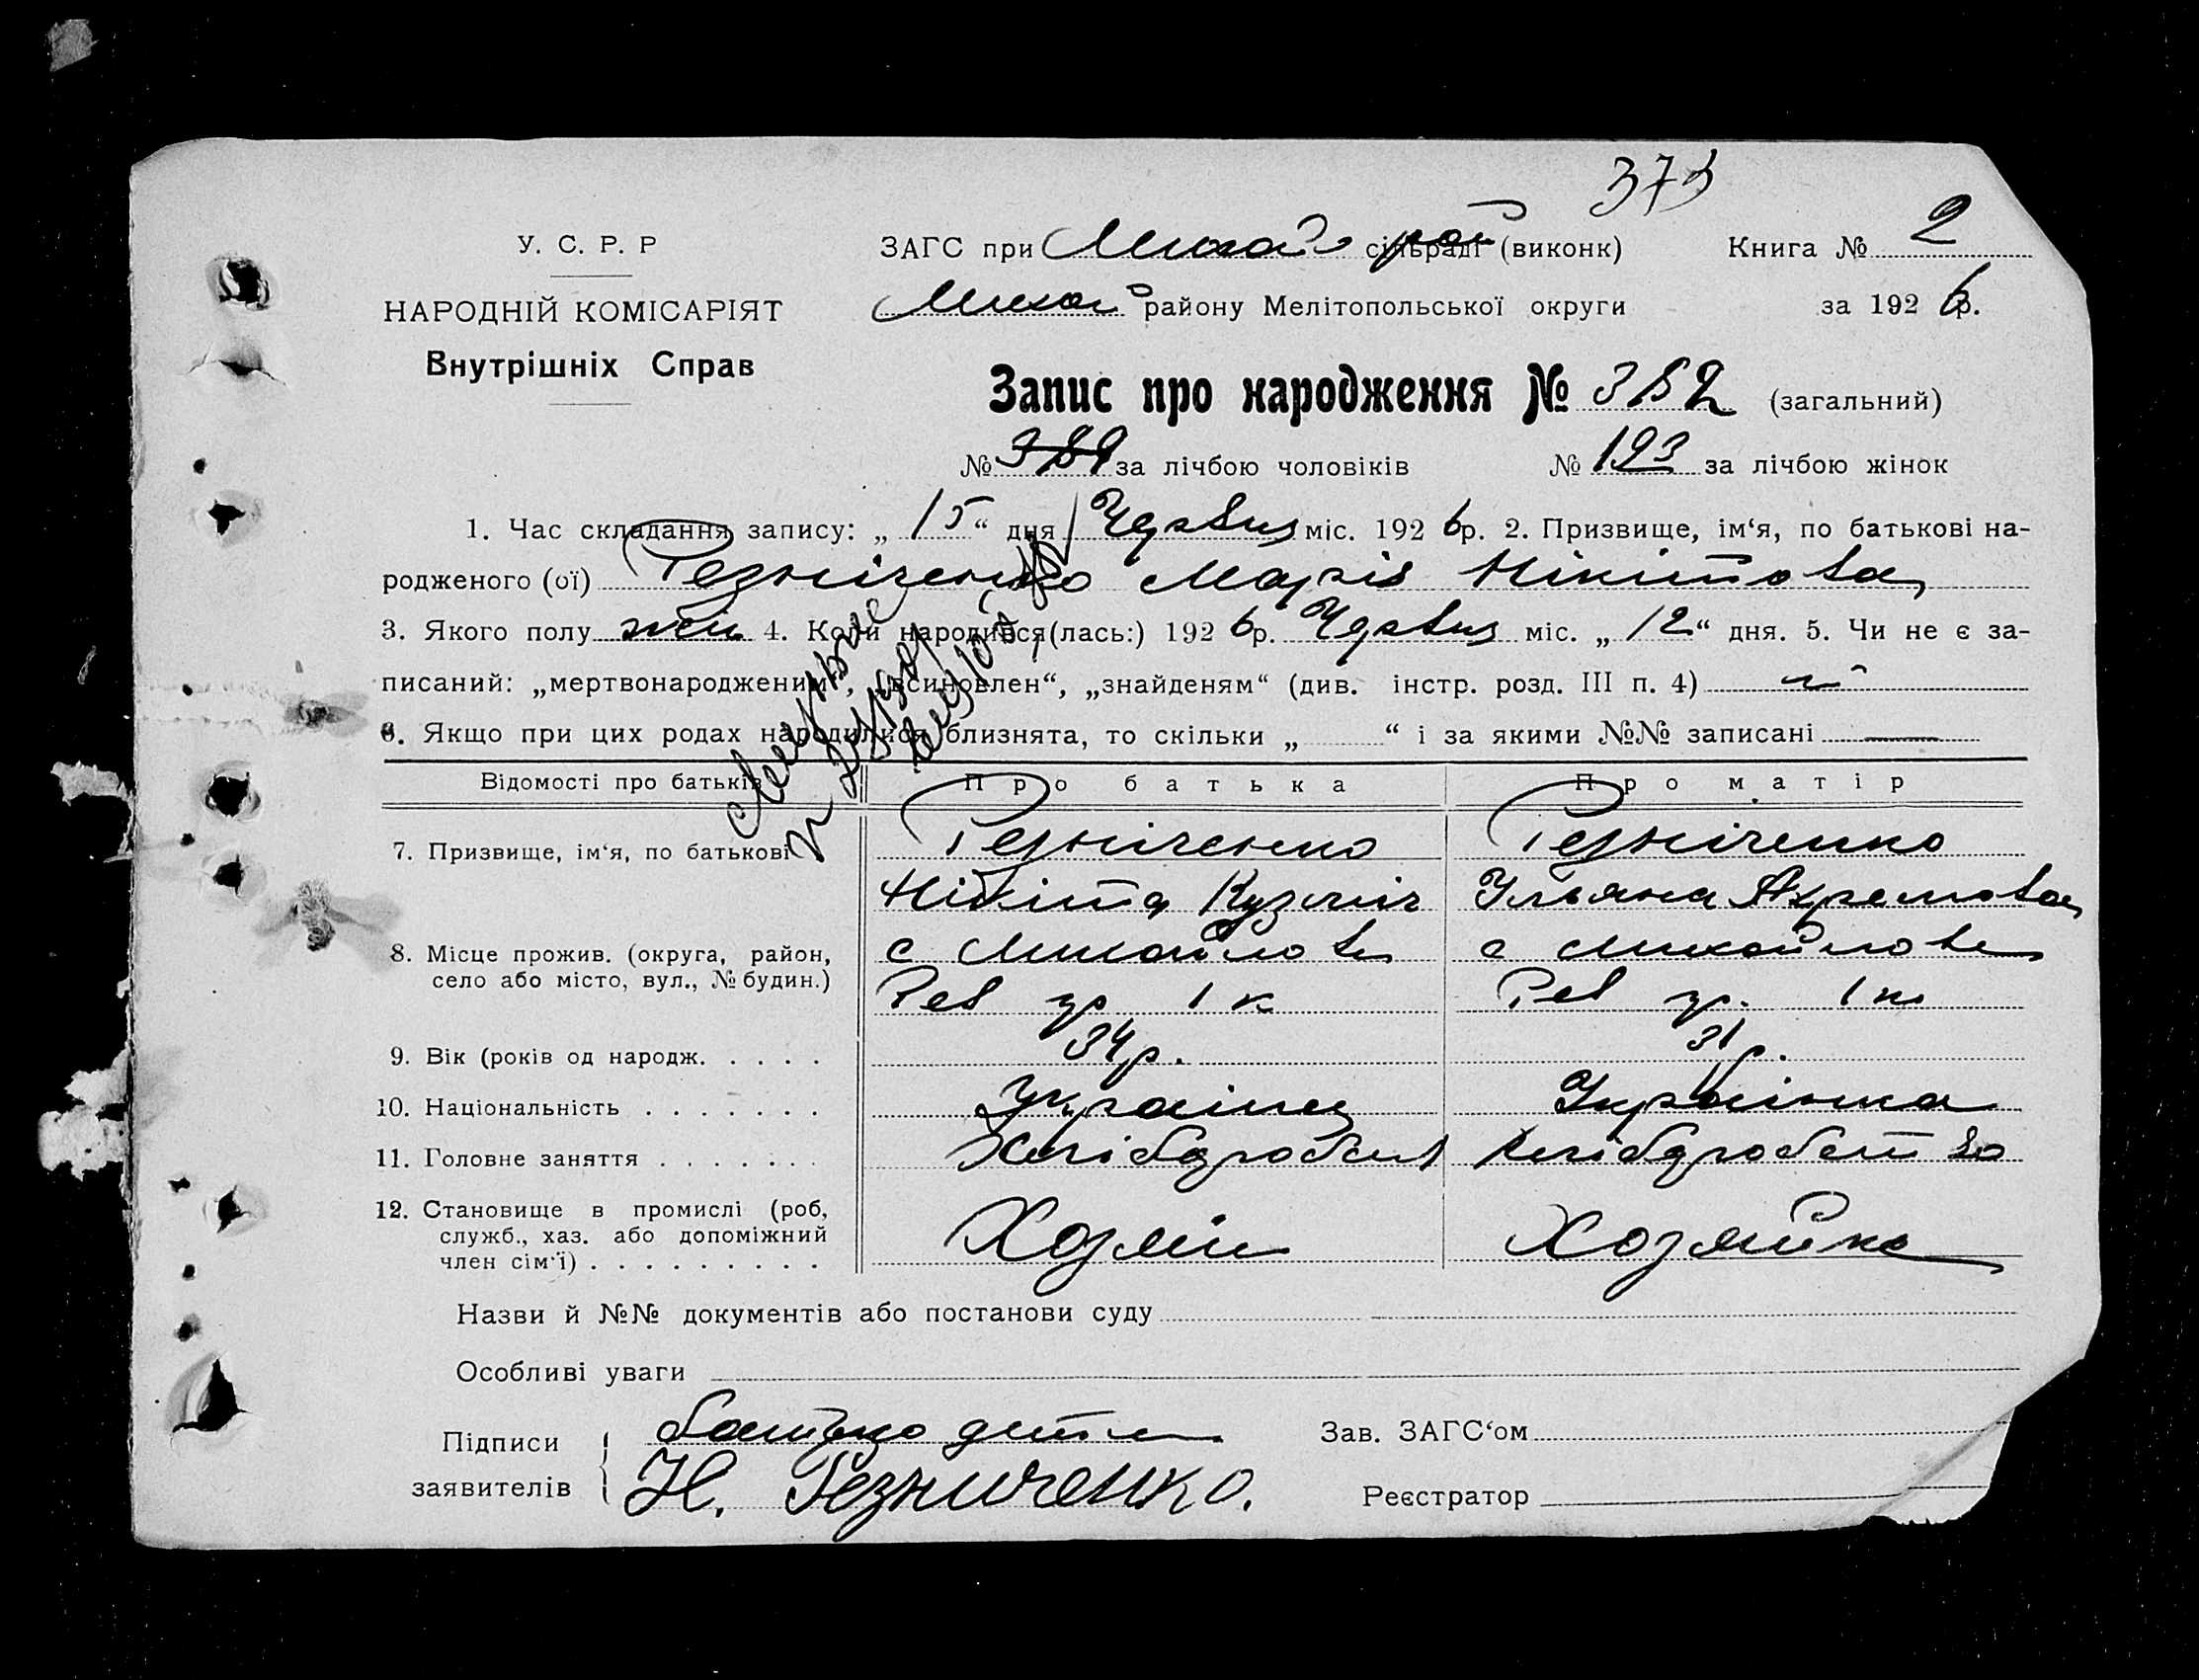 373
У. С. Р. Р
ЗАГС при Михай сільраді рай (виконк) Книга № 2
НАРОДНІЙ КОМІСАРІЯТ
Михай району Мелітопольської округи за 1926 р.
Внутрішніх Справ
Запис про народження № 352 (загальний)
№ 389 за лічбою чоловіків № 193 за лічбою жінок
1. Час складання запису: „ 15 “ дня Червня міс. 1926 р. 2. Призвище, ім‘я, по батькові на-
родженого (ої) Резніченко Марія Нікітова
3. Якого полу жін 4. Коли народився(лась:) 1926 р. Червня міс. „ 12 “ дня. 5. Чи не є за-
писаний: „мертвонародженим“, „всиновлен“, „знайденям“ (див. інстр. розд. III п. 4) ні
6. Якщо при цих родах народилися близнята, то скільки „ “ і за якими №№ записані —
Відомості про батьків Про батька Про матір
7. Призвище, ім‘я, по батькові Резніченко Резніченко
Нікіта Кузміч Ульяна
8. Місце прожив. (округа, район, с Михайловка с Михайловка
село або місто, вул., № будин.) Рев гр 1 к Рев гр. 1 к
9. Вік (років од народж. . . . . 34 р. 31 р.
10. Національність . . . . . . . Українец Українка
11. Головне заняття . . . . . . . Хлібороб
12. Становище в промислі (роб, служб., хаз. або допоміжний член сім‘ї) . . . . . . . . . Хозяін Хозяйка
Назви й №№ документів або постанови суду
Особливі уваги
Підписи батько дитя Зав. ЗАГС‘ом
заявителів Н. Резниченко. Реєстратор